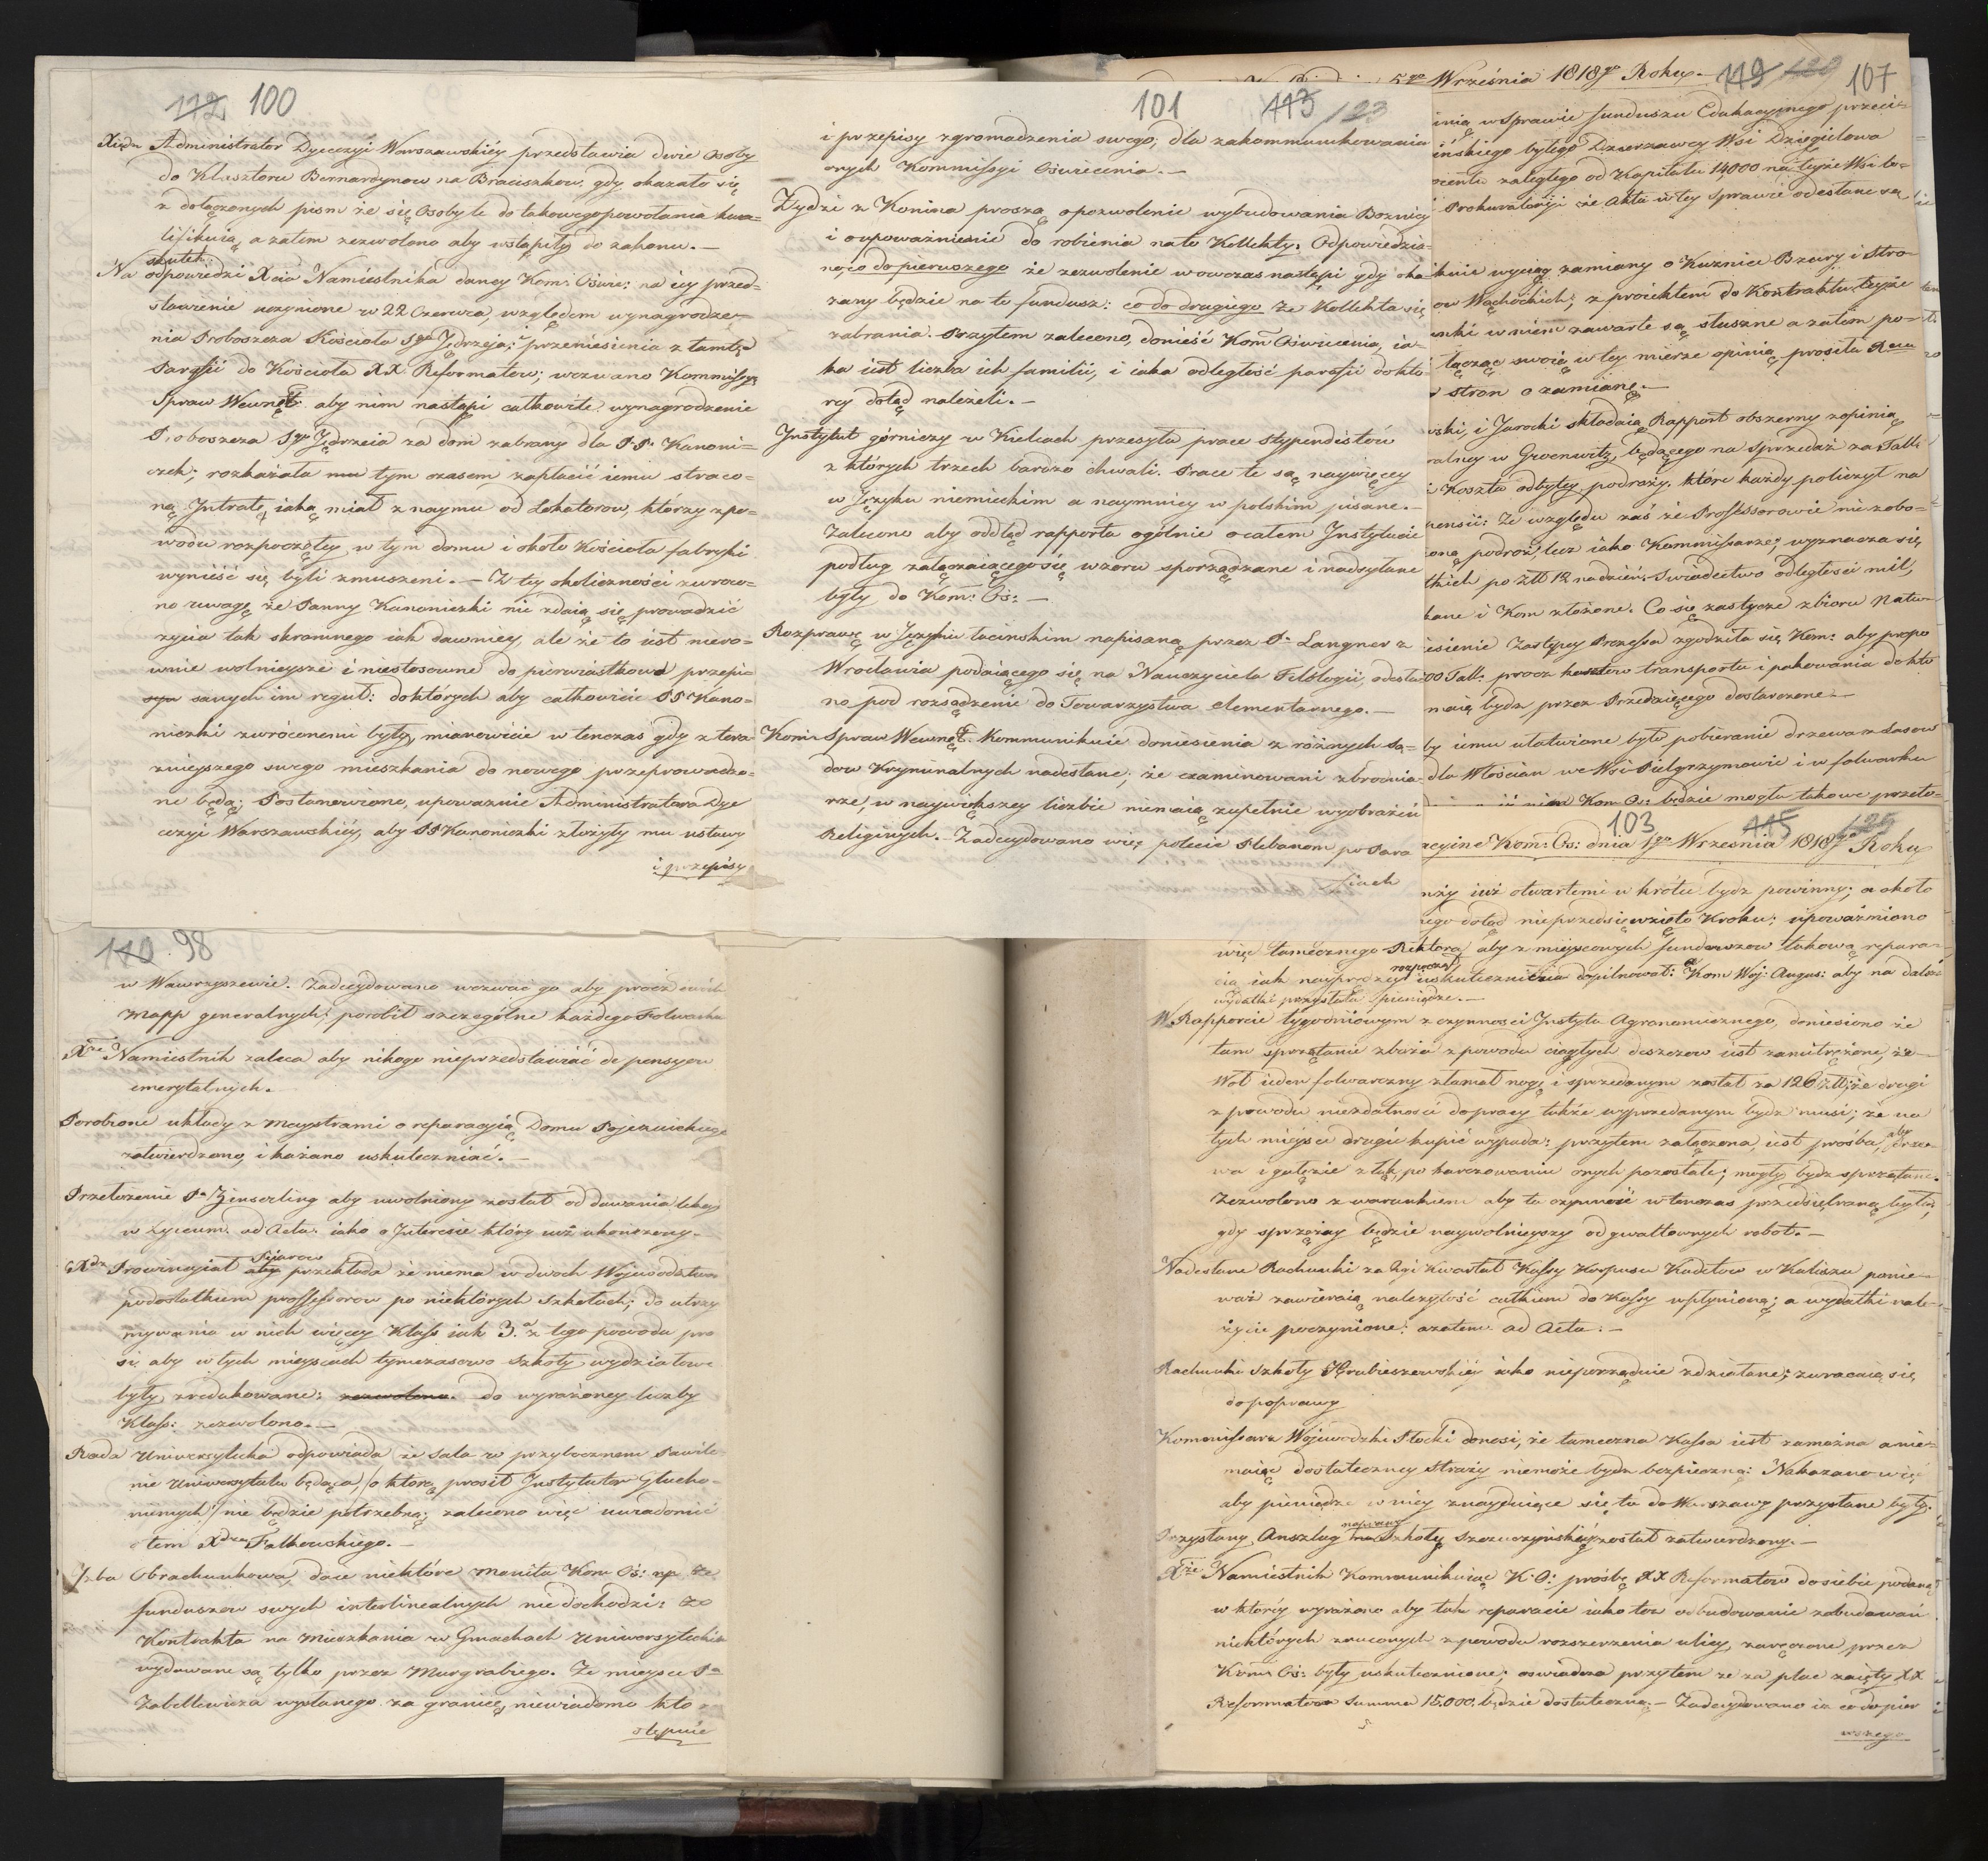 112 100
Xiądz Administrator Dyecezyi Warszawskiéy przedstawia dwie osoby
do Klasztoru Bernardynow na Braciszkow, gdy okazało się
z dołączonych pism że się osoby te do takowego powołania kwa=
lifikuią, a zatem zezwolono aby wstąpiły do zakonu. —
Na skutek odpowiedzi Xcia Namiestnika daney Kom: Oświe: na iey przed=
stawienie uczynione w 22 Czerwca, względem wynagrodze=
nia Proboszcza Kościoła Sgo Jędrzeja, i przeniesienia z tamtąd
Parafii do Kościoła XX Reformatow; wezwano Kommissyą
Spraw Wewnęt: aby nim nastąpi całkowite wynagrodzenie
Proboszcza Sgo Jędrzeia za dom zabrany dla PP. Kanoni=
czek; rozkazała mu tym czasem zapłacić iemu straco=
ną Intratę, iaką miał z naymu od Lokatorow, którzy zpo=
wodu rozpoczętey w tym domu i około Kościoła fabryki
wynieść się byli zmuszeni. — Z tey okoliczności zwróco=
no uwagę że Panny Kanoniczki nie zdaią się prowadzić
życia tak skromnego iak dawniey, ale że to iest nieró=
wnie wolnieysze i niestosowne do pierwiastkowo przepi=
sanych im reguł: do których aby całkowicie PP Kano=
niczki zwróconemi były, mianowicie w tenczas gdy z tera=
znieyszego swego mieszkania do nowego przeprowadzo=
ne będą; Postanowiono, upoważnić Administratora Dye
cezyi Warszawskiéy, aby PP Kanoniczki złożyły mu ustawy
i przepisy
101 113 123
i przepisy zgromadzenia swego; dla zakommunikowania
onych Kommissyi Oświecenia. —
Żydzi z Konina proszą o pozwolenie wybudowania Bożnicy
i o upoważnienie do robienia na to Kollekty: Odpowiedzia=
no co do pierwszego że zezwolenie w owczas nastąpi gdy oka=
zany będzie na to fundusz: co do drugiego że Kollekta się
zabrania. Przytem zalecono, donieść Kom Oświecenia, ia=
ka iest liczba ich familii, i iaka odległość parafii do któ
rey dotąd należeli. —
Instytut górniczy w Kielcach przesyła prace stypendistów
z których trzech bardzo chwali. Prace te są naywięcey
w Języku niemieckim a naymniey w polskim pisane. —
Zalecono aby oddtąd rapporta ogólnie o całem Instytucie
podług załączaiącego się wzoru sporządzane i nadsyłane
były do Kom: Oś: —
Rozprawę w Języku łacinskim napisaną przez P. Langner z
Wrocławia podaiącego się na Nauczyciela Filologii, odesła=
no pod rozsądzenie do Towarzystwa elementarnego. —
Kom: Spraw Wewnęt. Kommunikuie doniesienia z różnych Są=
dow Kryminalnych nadesłane; że examinowani zbrodnia=
rze, w naywiększey liczbie niemaią zupełnie wyobrażeń
Religinych. — Zadecydowano więc polecić Plebanom po Para
fiach
5go Września 1818go Roku. 119 129 107
inią w Sprawie funduszu Edukacyjnego przeci=
ińskiego byłego Dzierzawcy Wsi Dzięgielowa
zaległego od Kapitału 14000 na teyże Wsi
Prokuratoryi że Akta w tey Sprawie odesłane są
kuie wyciąg zamiany o Kuznice Bzury i Stro=
ow Wąchockich; z proiektem do Kontraktu teyże
unki w niem zawarte są słuszne a zatem po=
łącząc swoią w tey mierze opinią, prosiła
stron o zamianę. —
wski, i Jarocki składaią Rapport obszerny z opinią
ralney w Groenwitz, będącego na sprzedaż za Tall:
i Koszta odbytey podroży, które każdy policzył na
pensii: Ze względu zaś że Professorowie nie zobo=
oną podroż, lecz iako Kommissarze; wyznacza się
tkich po Złt 12 na dzień. Swiadectwo odległości mil,
kane i Kom złożone. Co się zaś tycze zbioru Natu=
iesienie Zastępcy Prezesa zgodziła się Kom: aby
00 Tall: procz kosztow transportu i pakowania
maią bydz przez Przedaiącego dostarczone —
by iemu ułatwione było pobieranie drzewa z Lasow
dla Włościan we Wsi Pielgrzymowie i w folwarku
Kom: Os: będzie mogła takowe przeło=
103 115 125
acyine Kom: Os: dnia 1go Września 1818go Roku
nży iuż otwartemi w krótce bydz powinny; a około
nego dotąd nieprzedsięwzięto Kroku; upoważniono
więc tamecznego Rektora, aby z mieyscowych funduszow takową repara=
cią iak nayprędzey rozpoczął uskutecznienia dopilnował: a Kom Woj: Augus: aby na dalsze
wydatki przysłała pieniądze. —
W Rapporcie tygodniowym z czynności Instytu Agronomicznego, doniesiono że
tam sprzątanie zboża z powodu ciągłych deszczow iest zamitrężone, że
Woł ieden folwarczny złamał nogę i sprzedanym został za 126 Złt; że drugi
z powodu niezdatności do pracy także wyprzedanym bydz musi; że na
tych mieysce drugie kupić wypada: przytem załączona iest prośba, aby drze=
wa i gałęzie z łąk, po karczowaniu onych pozostałe; mogły bydz sprzątane.
Zezwolono z warunkiem aby ta czynność w tenczas przedsiębraną była,
gdy sprzężay będzie naywolnieyszy od gwałtownych robot. —
Nadesłane Rachunki za IIgi Kwartał Kassy Korpusu Kadetow w Kaliszu ponie=
waż zawieraią należytość całkiem do Kassy wpłynioną; a wydatki nale=
życie poczynione: azatem ad Acta. —
Rachunki Szkoły Hrubieszewskiéy iako nieporządnie zdziałane; zwracaią się
do poprawy
Kommissarz Wojewodzki Płocki donosi, że tameczna Kassa iest zamożna a nie=
maiąc dostateczney straży niemoże bydz bezpieczną: Nakazano więc
aby pieniądze w niey znayduiące się tu do Warszawy przysłane były.
Przysłany Anszlag na naprawę Szkoły Szczuczyńskiéy został zatwierdzony. —
Xże Namiestnik Kommunikuiąc K: O: prośbę XX Reformatow do siebie podaną
w któréy wyrażono aby tak reparacie iako też odbudowanie zabudowań
niektórych zruconych z powodu rozszerzenia ulicy, zaręczone przez
Kom: Oś: były uskutecznione; oswiadcza przytem że za plac zaięty XX
Reformatow Summa 15.000. będzie dostateczną. — Zadecydowano iż co do pier
wszego
110 98
w Wawrzyszewie: Zadecydowano wezwać go aby procz dwóch
Mapp generalnych; porobił szczególne każdego Folwarku
Xże Namiestnik zaleca aby nikogo nieprzedstawiać do pensyow
emerytalnych.
Porobione układy z Maystrami o reparacyią Domu Pojezuickiego
zatwierdzono, i kazano uskuteczniać. —
Przełożenie Pa Zinserling aby uwolniony został od dawania lekcyi
w Lyceum. ad Acta. iako o Interesie który iuż ukończony. —
Xdz Prowincyiał Pijarow przekłada że niema w dwoch Wojewodztwa
podostatkiem professorow po niektórych Szkołach; do utrzy
mywania w nich więcey Klass iak 3. a z tego powodu pro
si aby w tych mieyscach tymczasowo Szkoły wydziałowe
były zredukowane: zezwolono. do wyrażoney liczby
Klass: zezwolono. —
Rada Uniwersytecka odpowiada że Sala w przybocznem Pawilo
nie Uniwersytetu będąca, (o którą prosił Instytutor Głucho=
niemych) nie będzie potrzebną; zalecono więc uwiadomić
o tem Xdza Falkowskiego. —
Izba Obrachunkowa, daie niektóre monita Kom Oś: np. Ze
funduszow swych interlinealnych nie dochodzi: Ze
Kontrakta na Mieszkania w Gmachach Uniwersyteckich
wydawane są tylko przez Murgrabiego. Ze mieysce Pa
Zabellewicza wysłanego za granicę, niewiadomo kto
stępuie